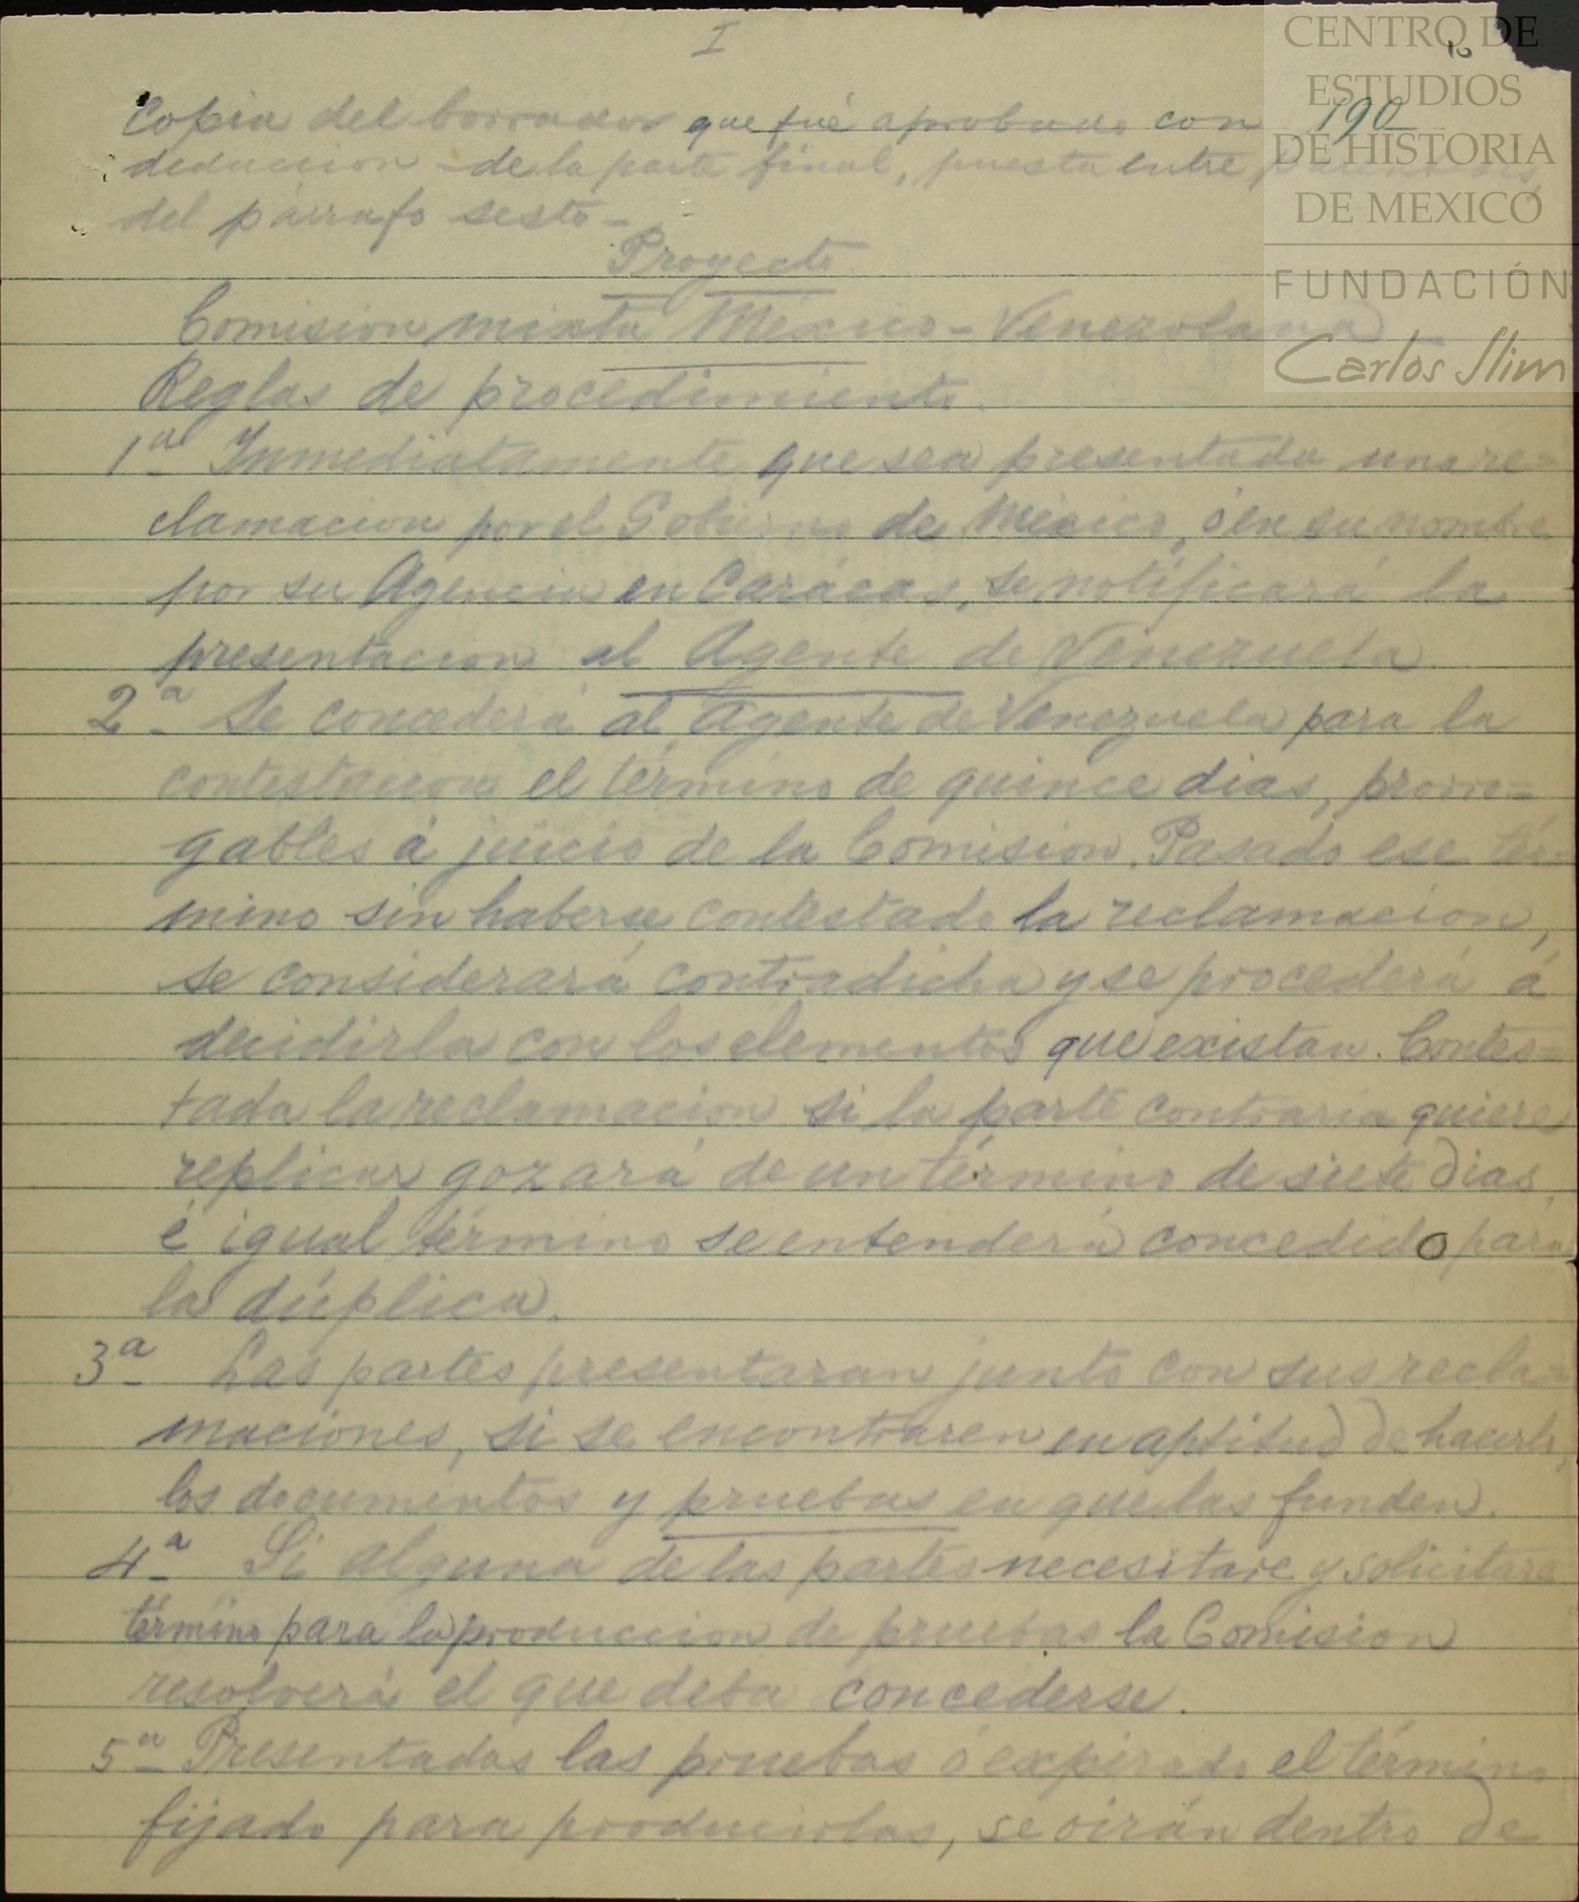 I
10
CENTRO DE
ESTUDIOS
DE HISTORIA
DE MEXICO
FUNDACIÓN
Carlos Slim
190
Copia del borrador que fué aprobado con
deduccion de la parte final, puesta entre parentesis,
del párrafo sesto-
Proyecto
Comision mixta México-Venezolana
Reglas de procedimiento.
1a Inmediatamente que sea presentada una re-
clamacion por el Gobierno de México, ó en su nombre
por su Agencia en Carácas, se notificará la
presentacion al Agente de Venezuela
2a Se concederá al Agente de Venezuela para la
contestacion el término de quince dias, prorro-
gables á juicio de la Comision. Pasado ese tér-
mino sin haberse contestado la reclamacion,
se considerará contradicha y se procederá á
decidirla con los elementos que existan. Contes-
tada la reclamacion si la parte contraria quiere
replicar gozará de un término de siete dias,
é igual término se entenderá concedido para
la dúplica.
3a Las partes presentaran junto con sus recla-
maciones, si se encontraren en aptitud de hacerlo,
los documentos y pruebas en que las funden.
4a Si alguna de las partes necesitare y solicitare
término para la produccion de pruebas la Comision
resolverá el que deba concederse.
5a Presentadas las pruebas ó expirado el término
fijado para producirlas, se oirán dentro de